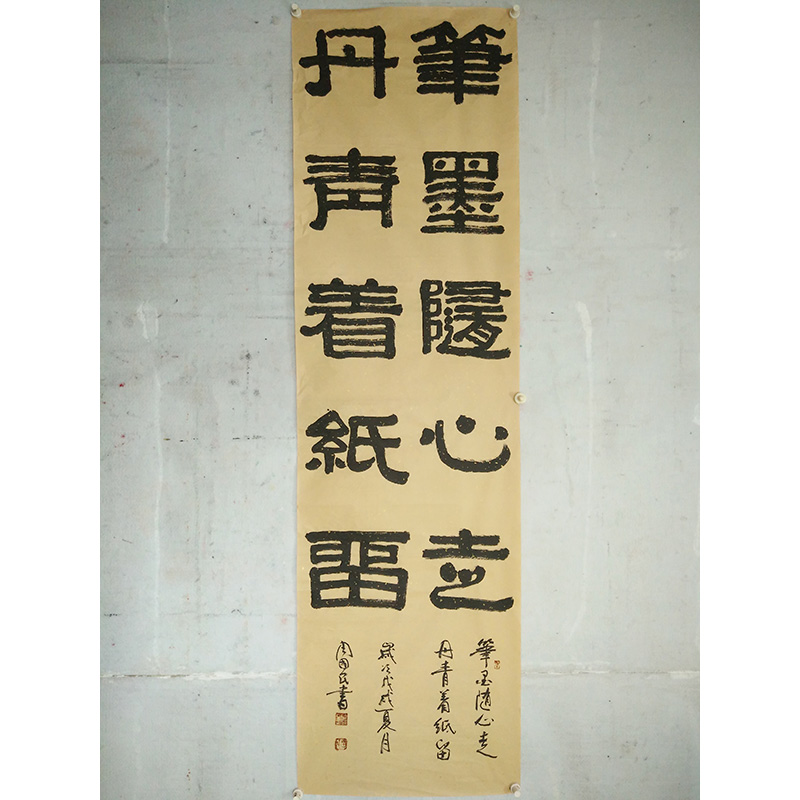 筆墨隨心走
丹青着紙留
筆墨随心走
丹青着紙留
歲次戊戌夏月
周國民書